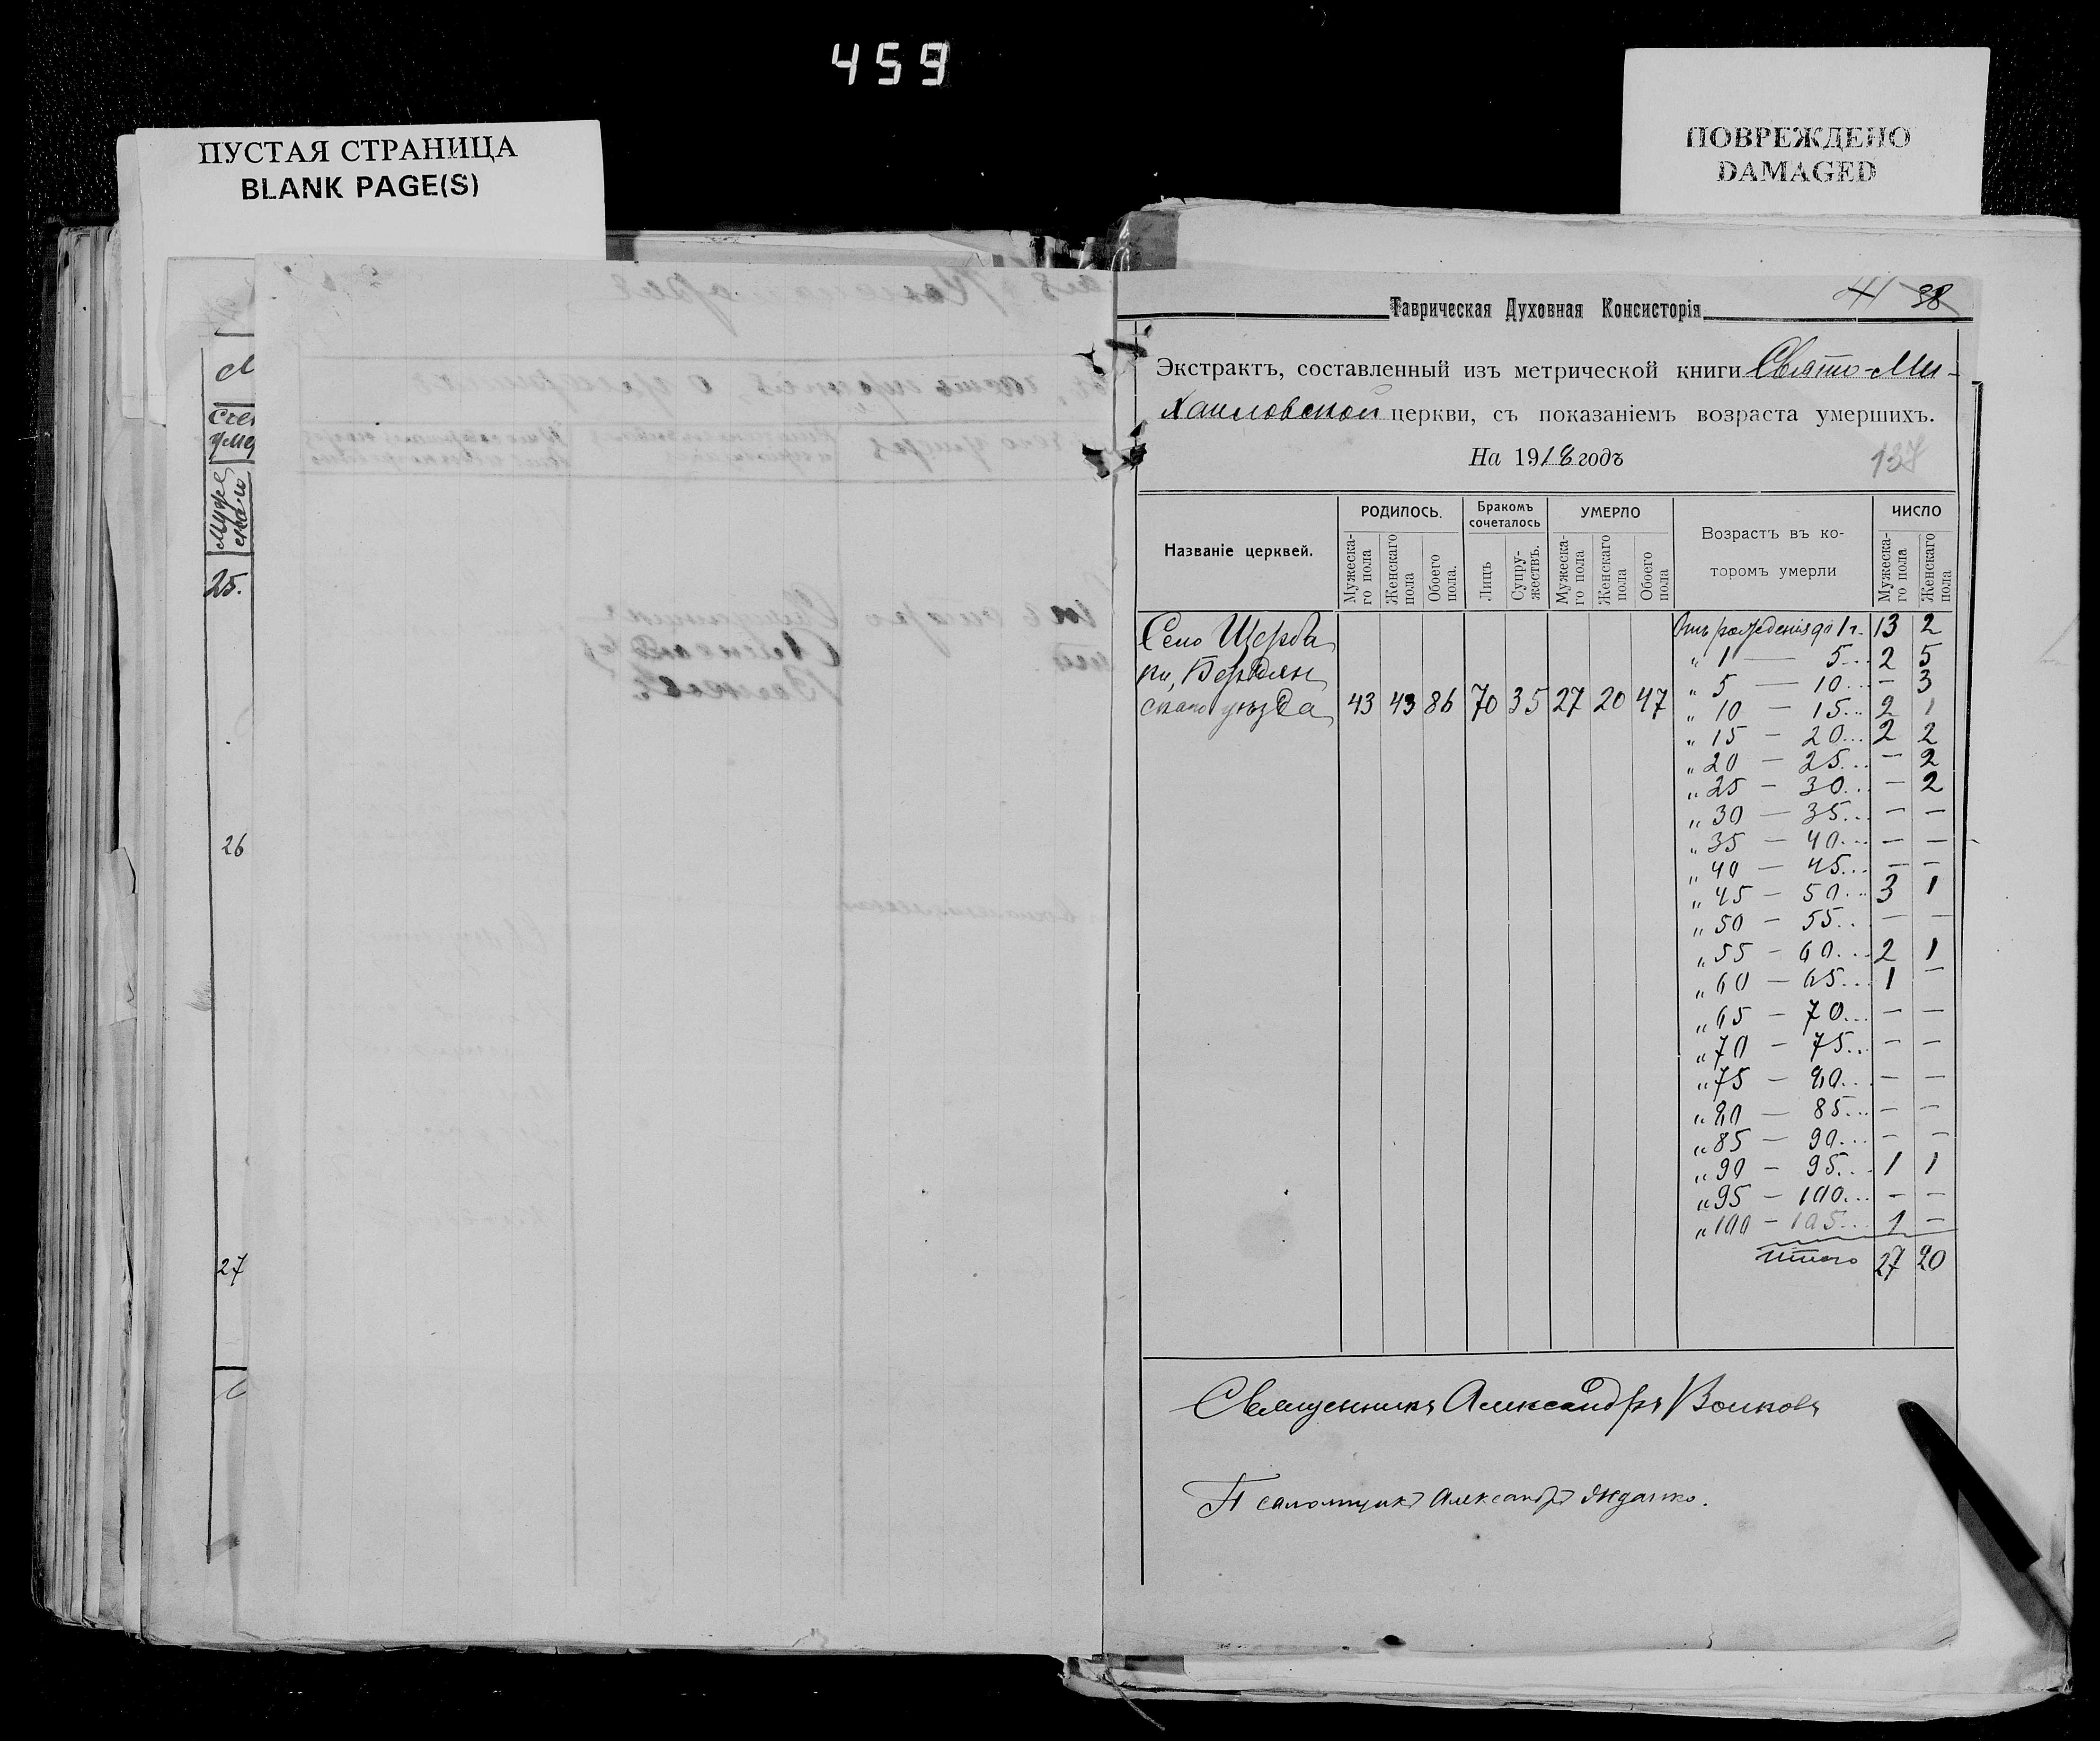 459
ПУСТАЯ СТРАНИЦА
BLANK PAGE(S)
ПОВРЕЖДЕНО
DAMAGED
25.
26
27
41 38
Таврическая Духовная Консисторія
Экстрактъ, составленный изъ метрической книги Свято-Ми-
хаиловской церкви, съ показаніемъ возраста умершихъ.
На 1918 годъ
137
Названіе церквей.
РОДИЛОСЬ.
Мужеска-го пола
Женскаго пола
Обоего пола.
Бракомъ сочеталось
Лицъ
Супру-жествъ.
УМЕРЛО
Мужеска-го пола
Женскаго пола
Обоего пола
Возрастъ въ ко-
торомъ умерли
ЧИСЛО
Мужеска-го пола
Женскаго пола
Село Щерба
ки, Бердян
скаго уѣзда 43 43 86 70 35 27 20 47
Отъ рожденія до 1 г. 13 2
" 1 — 5... 2 5
" 5 — 10... — 3
" 10 — 15... 2 1
" 15 — 20... 2 2
" 20 — 25... — 2
" 25 — 30... — 2
" 30 — 35... — —
" 35 — 40... — —
" 40 — 45... — —
" 45 — 50... 3 1
" 50 — 55... — —
" 55 — 60... 2 1
" 60 — 65... 1 —
" 65 — 70... — —
" 70 — 75... — —
" 75 — 80... — —
" 80 — 85... — —
" 85 — 90... — —
" 90 — 95... 1 1
" 95 — 100... — —
" 100 — 105... 1 —
Итого 27 20
Священникъ Александръ Волковъ
Псаломщикъ Александръ